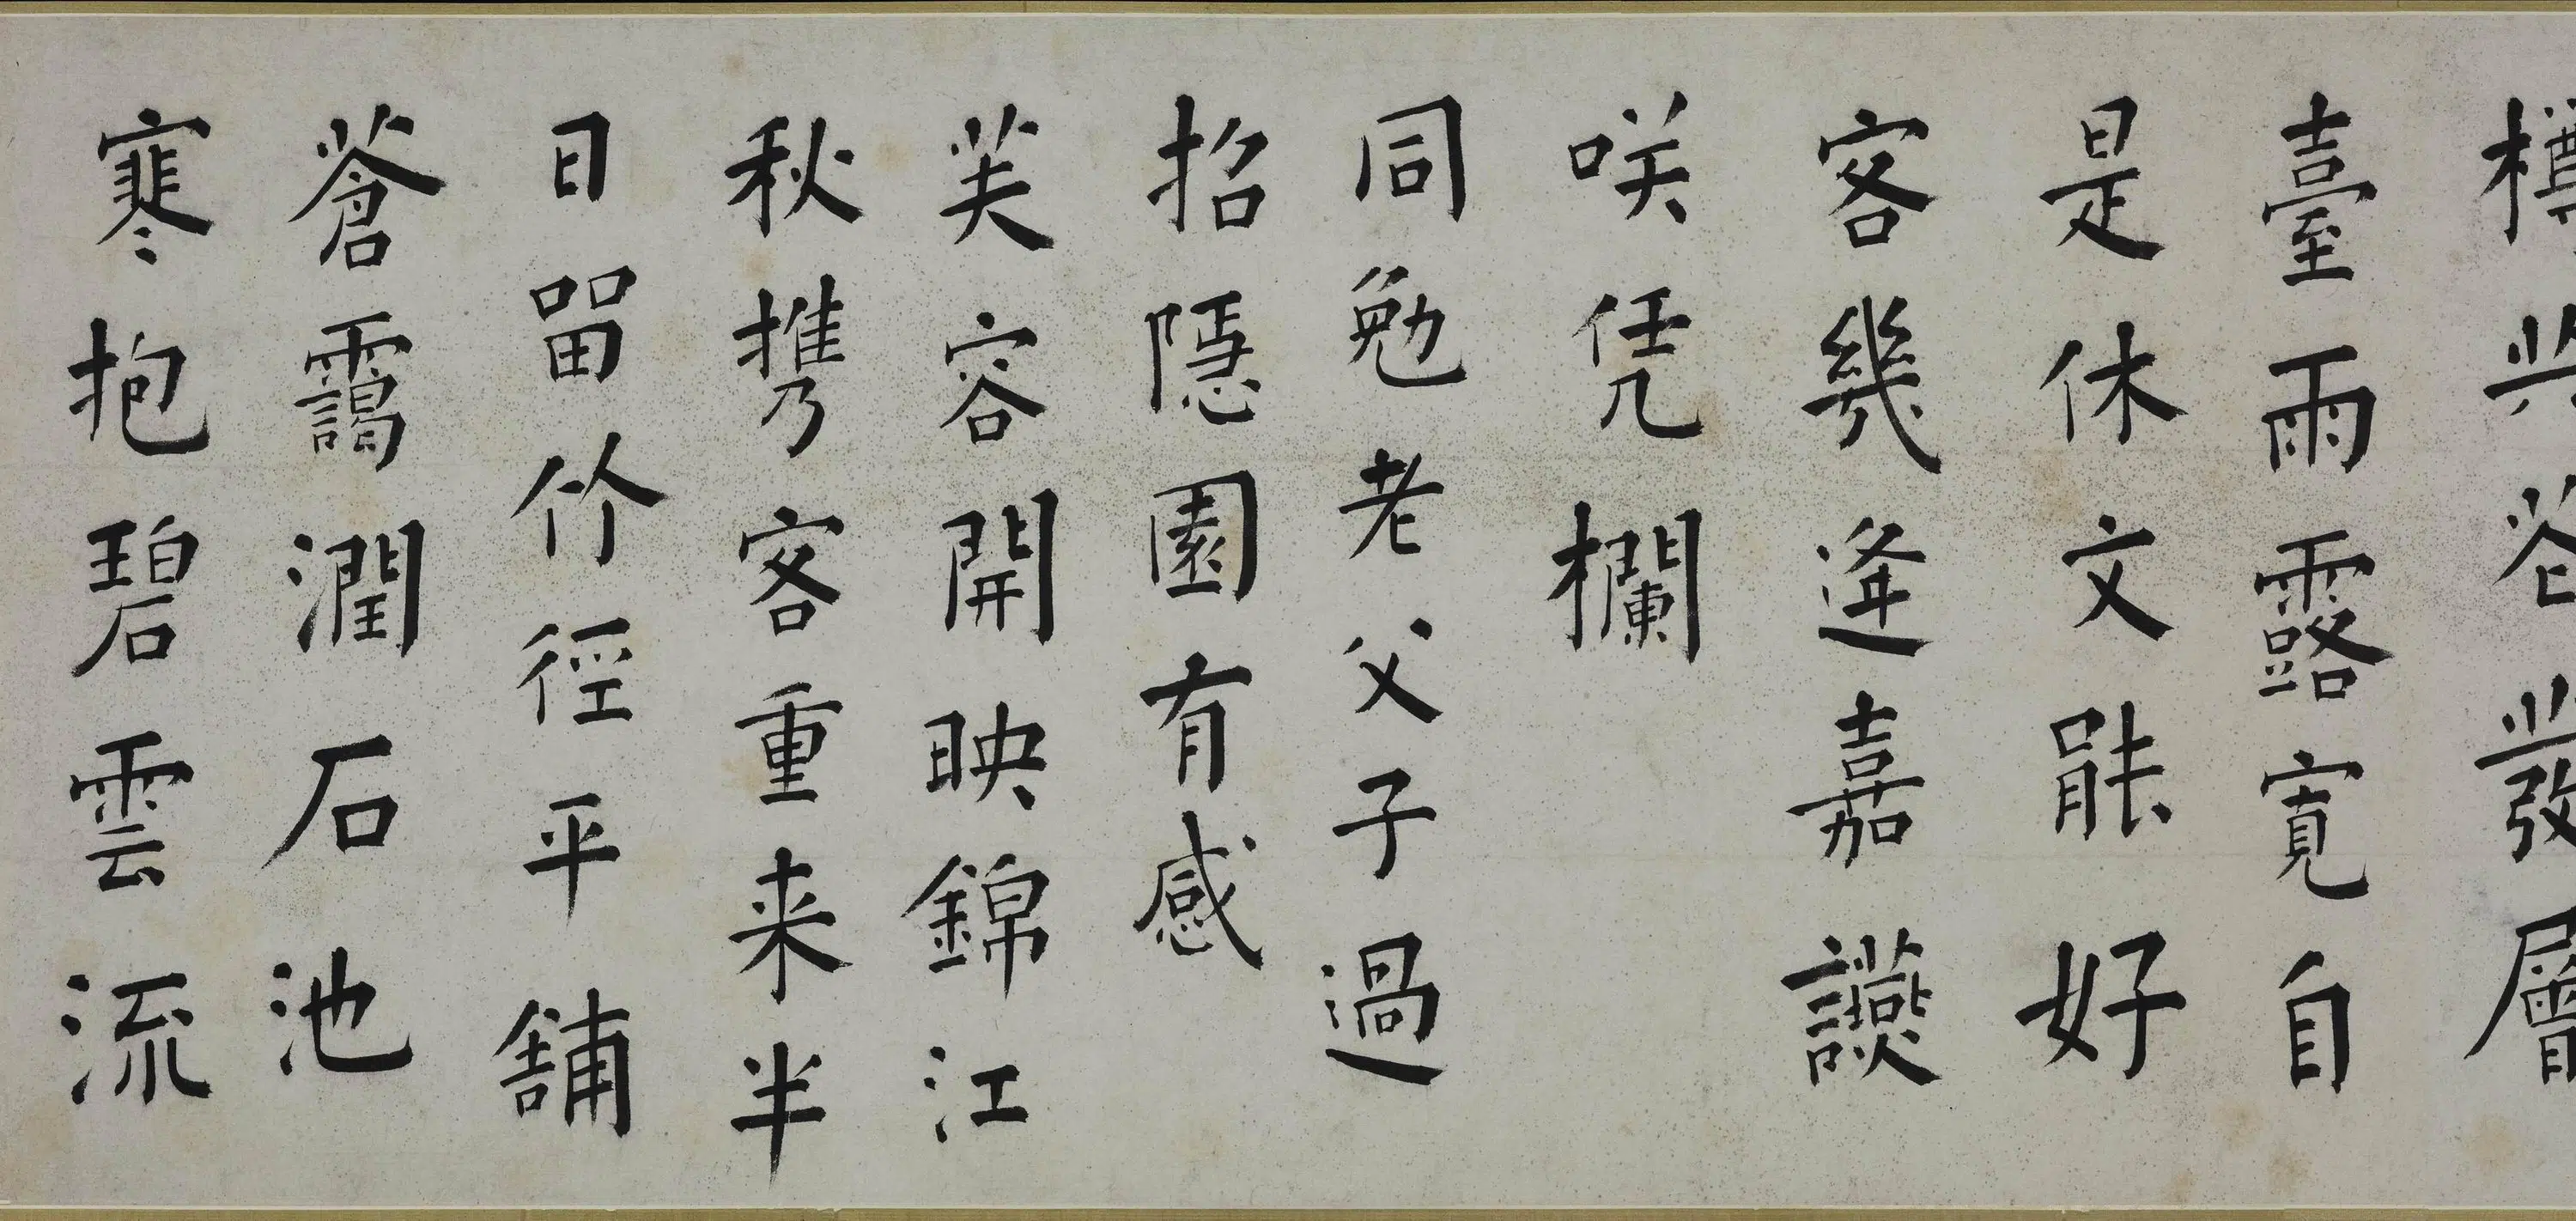 樽共苍發層
臺雨露寬自
是休文能好
客幾逢嘉讌
咲凭欄
同勉老父子過
招隱園有感
芙容開映錦江
秋攜客重来半
日留竹徑平鋪
蒼靄潤石池
寒抱碧雲流